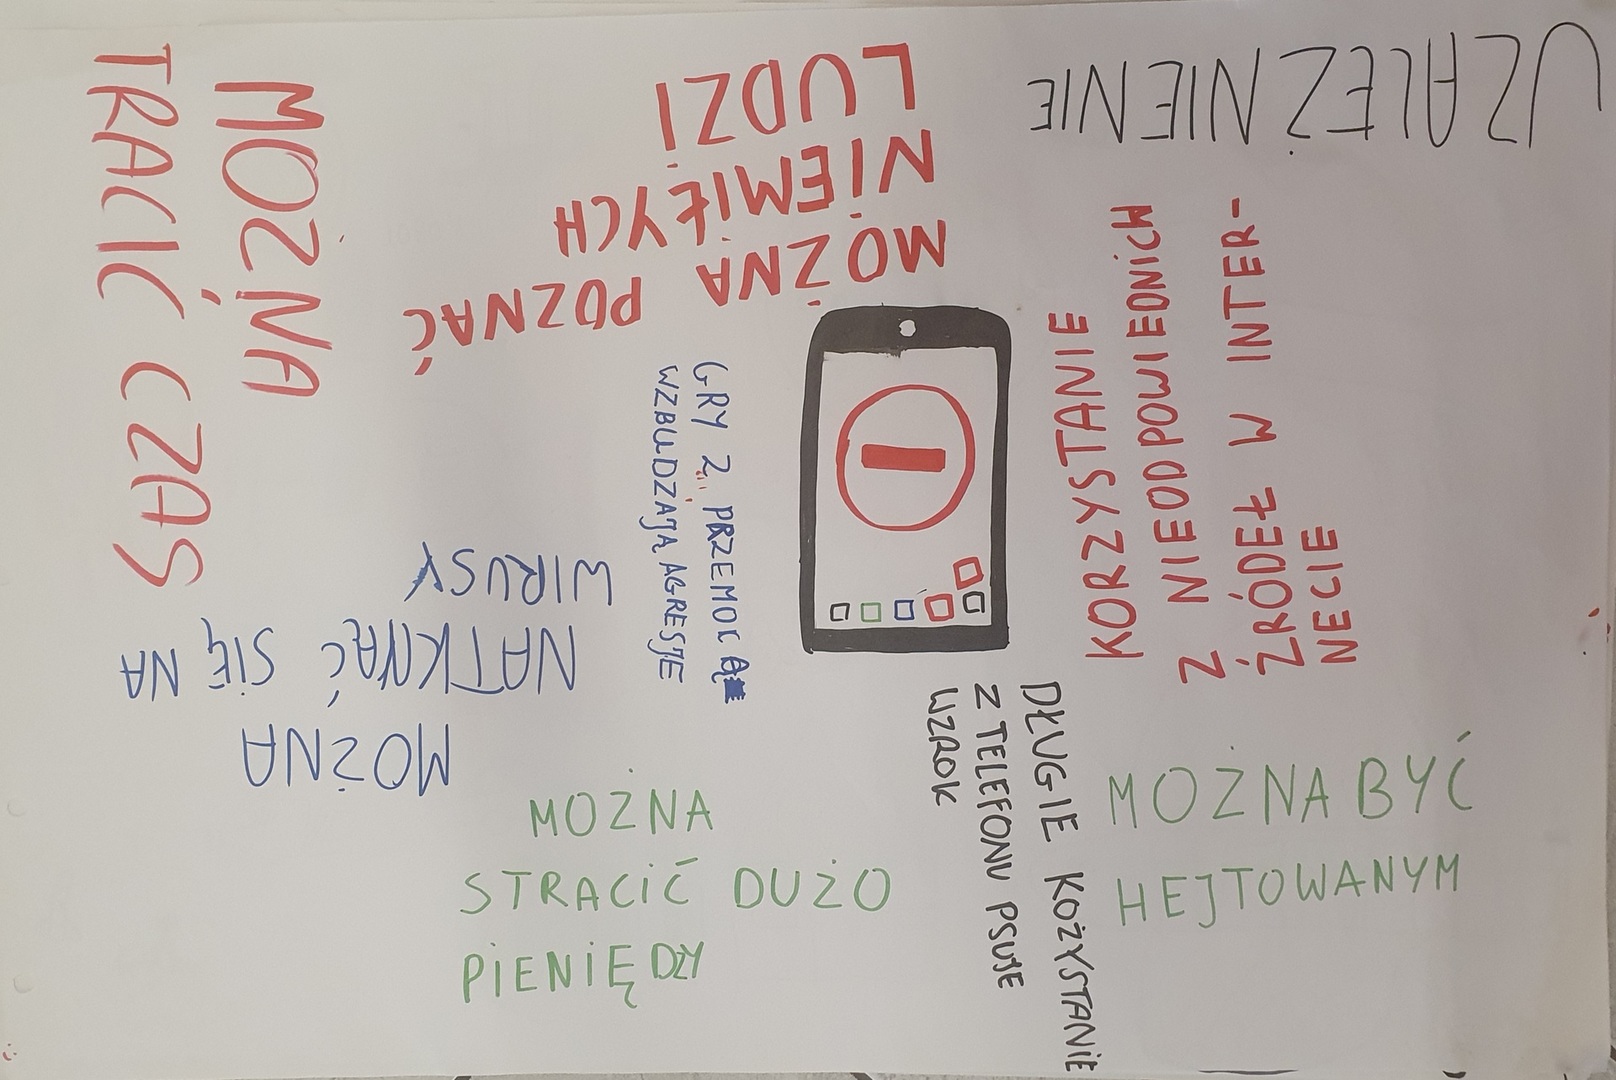 UZALEŻNIENIE
MOŻNA POZNAĆ
NIEMIŁYCH
LUDZI
MOŻNA
TRACIĆ CZAS
GRY Z PRZEMOCĄ
WZBUDZAJĄ AGRESJE
KORZYSTANIE
Z NIEODPOWIEDNICH
ŹRÓDEŁ W INTER-
NECIE
MOŻNA
NATKNĄĆ SIĘ NA
WIRUSY
MOŻNA
STRACIĆ DUŻO
PIENIĘDZY
DŁUGIE KOŻYSTANIE
Z TELEFONU PSUJE
WZROK
MOŻNA BYĆ
HEJTOWANYM